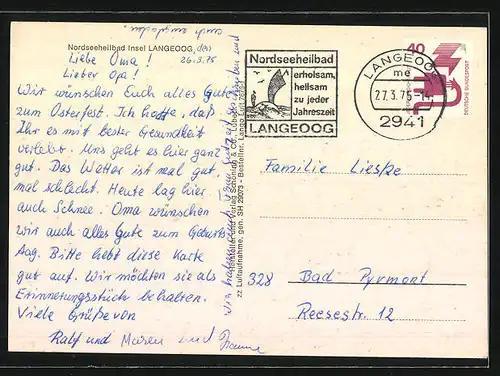 Nordseeheilbad Insel LANGEOOG, den
26.3.75
Liebe Oma!
Lieber Opa!
Wir wünschen Euch alles Gute
zum Osterfest. Ich hoffe, daß
Ihr es mit bester Gesundheit
verlebt. Uns geht es hier ganz
gut. Das Wetter ist mal gut,
mal schlecht. Heute lag hier
auch Schnee. Oma wünschen
wir auch alles Gute zum Geburts
tag. Bitte hebt diese Karte
gut auf. Wir möchten sie als
Erinnerungsstück behalten.
Viele Grüße von
Ralf und Maren und
Nordseeheilbad
erholsam,
heilsam
zu jeder
Jahreszeit
LANGEOOG
LANGEOOG
27.3.75-14
2941
40
DEUTSCHE BUNDESPOST
Familie Liepke
328 Bad Pyrmont
Reesestr. 12